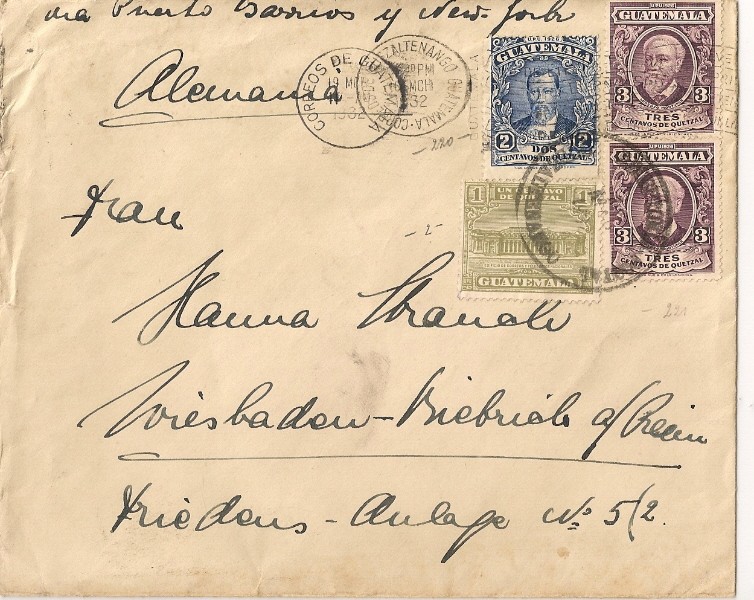 via Puerto Barrios y New-York
Alemania
CORREOS DE GUATEMALA
1932
QUEZALTENANGO GUATEMALA
GUATEMALA
2 2
DOS
CENTAVOS DE QUETZAL
GUATEMALA
3 3
TRES
CENTAVOS DE QUETZAL
GUATEMALA
3 3
TRES
CENTAVOS DE QUETZAL
1 UN CENTAVO 1
DE QUETZAL
GUATEMALA
-220
-2-
-221
Frau
Hanna Strauch
Wiesbaden-Biebrich a/Rhein
Friedens-Anlage No 5/2.